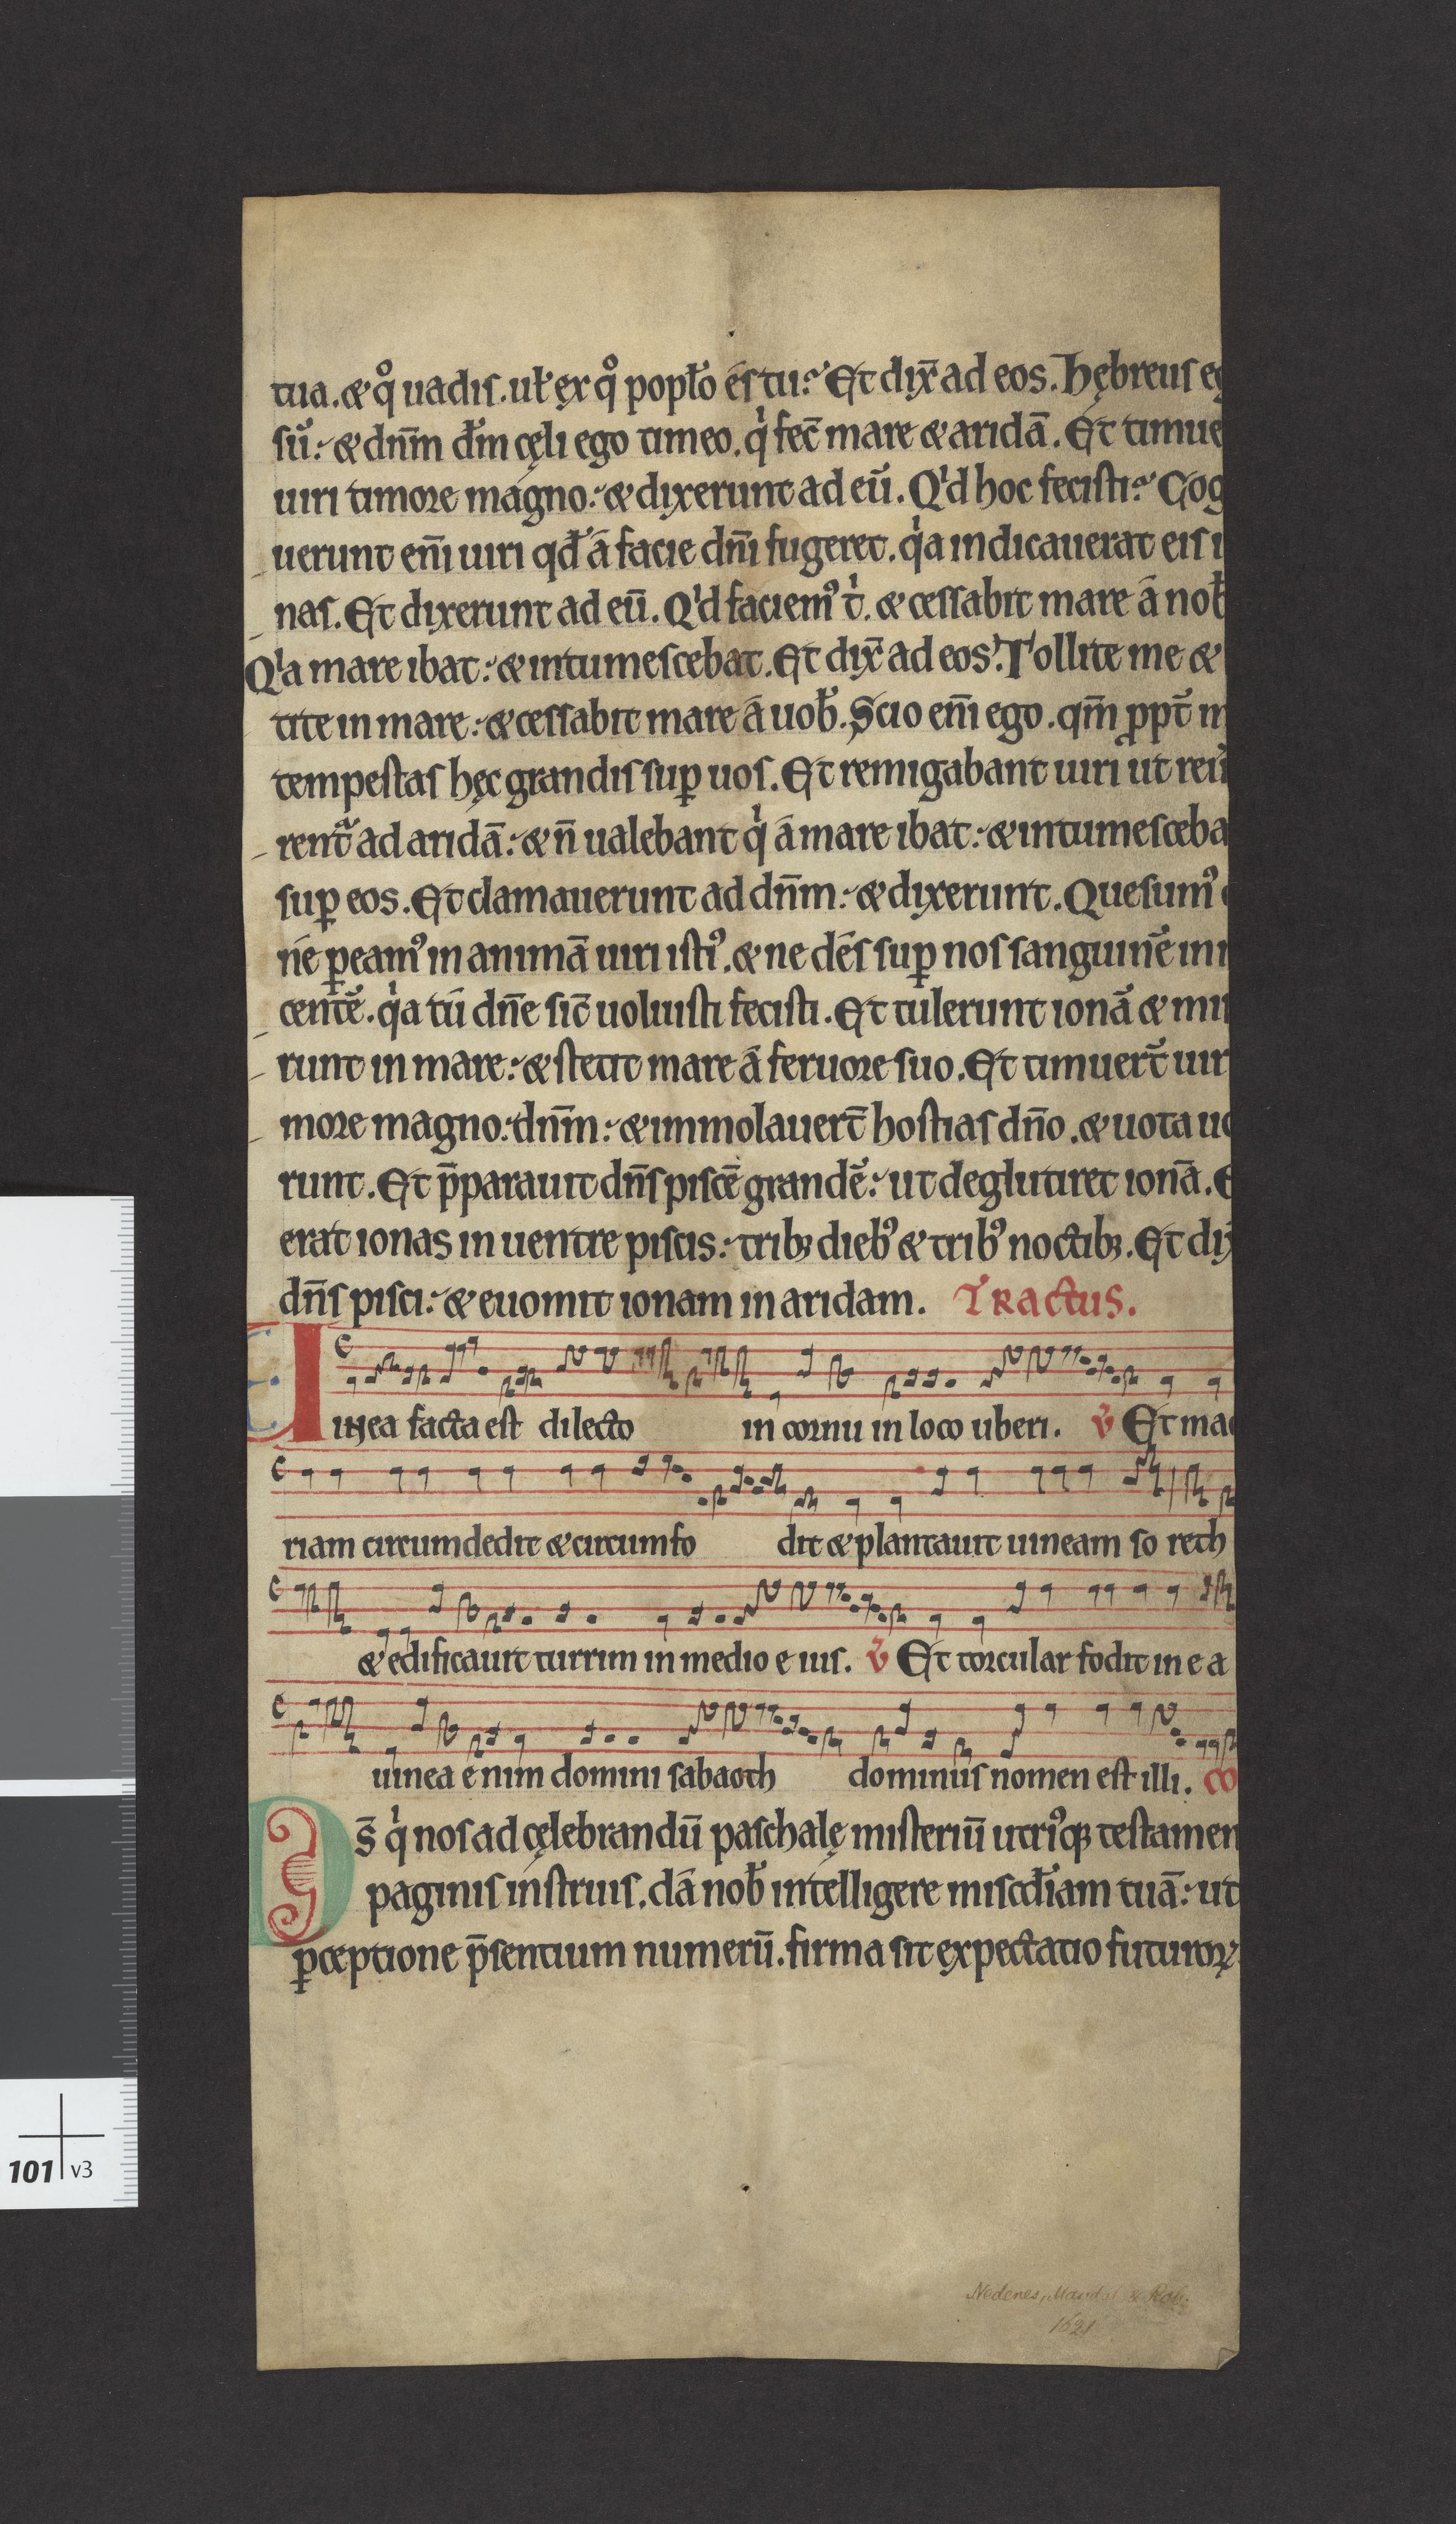 tua. & qͦ uadis. ul̛ ex qͦ popl̛o és tu? Et dix̄ ad eos. Hębreus eg
sū. & dn̄m d̄m cęli ego timeo. qͥ fec̄ mare & aridā. Et timue
uiri timore mágno. & dixerunt ad eū. Qͥd hoc fecisti? Cog
uerunt en̄i uiri qd̛ á facie dn̄i fugeret. qͥa indicauerat eis i
nas. Et dixerunt ad eū. Qͥd faciemꝰ tͥ. & cessabit mare á nob̛
Qͥa mare ibat. & intumescebat. Et dix̄ ad eos. Tollite me &
tite in mare. & cessabit mare á uob̛. Scio en̄i ego. qm̄ ꝓpt̄ m
tempestas hęc grandis suꝑ uos. Et remigabant uiri ut reu̍
rent᷑ ad aridā. & n̄ ualebant qͥ á mare ibat. & intumesceba
suꝑ eos. Et clamauerunt ad dn̄m. & dixerunt. Quesumꝰ
né ꝑeamꝰ in animā uiri istiꝰ. & ne dés suꝑ nos sanguinē inn
centē. qͥa tú dn̄e sic̄ uoluisti fecisti. Et tulerunt ionā & mi
runt in mare. & stetit mare á feruore suo. Et timuert̄ uir
more magno. dn̄m. & immolauert̄ hostias dn̄o. & uota uo
runt. Et p̄parauit dn̄s piscē grandē. ut deglutiret ionā. E
erat ionas in uentre piscis. tribꝫ diebꝰ & tribꝰ noctibꝫ. Et dix̄
dn̄s pisci. & euomit ionam in aridam. Tractus.
Uinea facta est dilecto in cornu in loco uberi. v̄ Et mac
riam circumdedit & circumfo dit & plantauit uineam so rech
& edificauit turrim in medio e ius. v̄ Et torcular fodit in e a
uinea enim domini sabaoth dominus nomen est illi. co
Ds̄ qͥ nos ad cęlebrandū paschalę misteriū utriꝰqꝫ testamen
paginis ínstruis. dá nob̛ intelligere misc̄diam tuā. ut
ꝑceptione p̄sentium munerū. firma sit expectatio futuroꝝ
Nedenes, Mandal & Rob.
1621